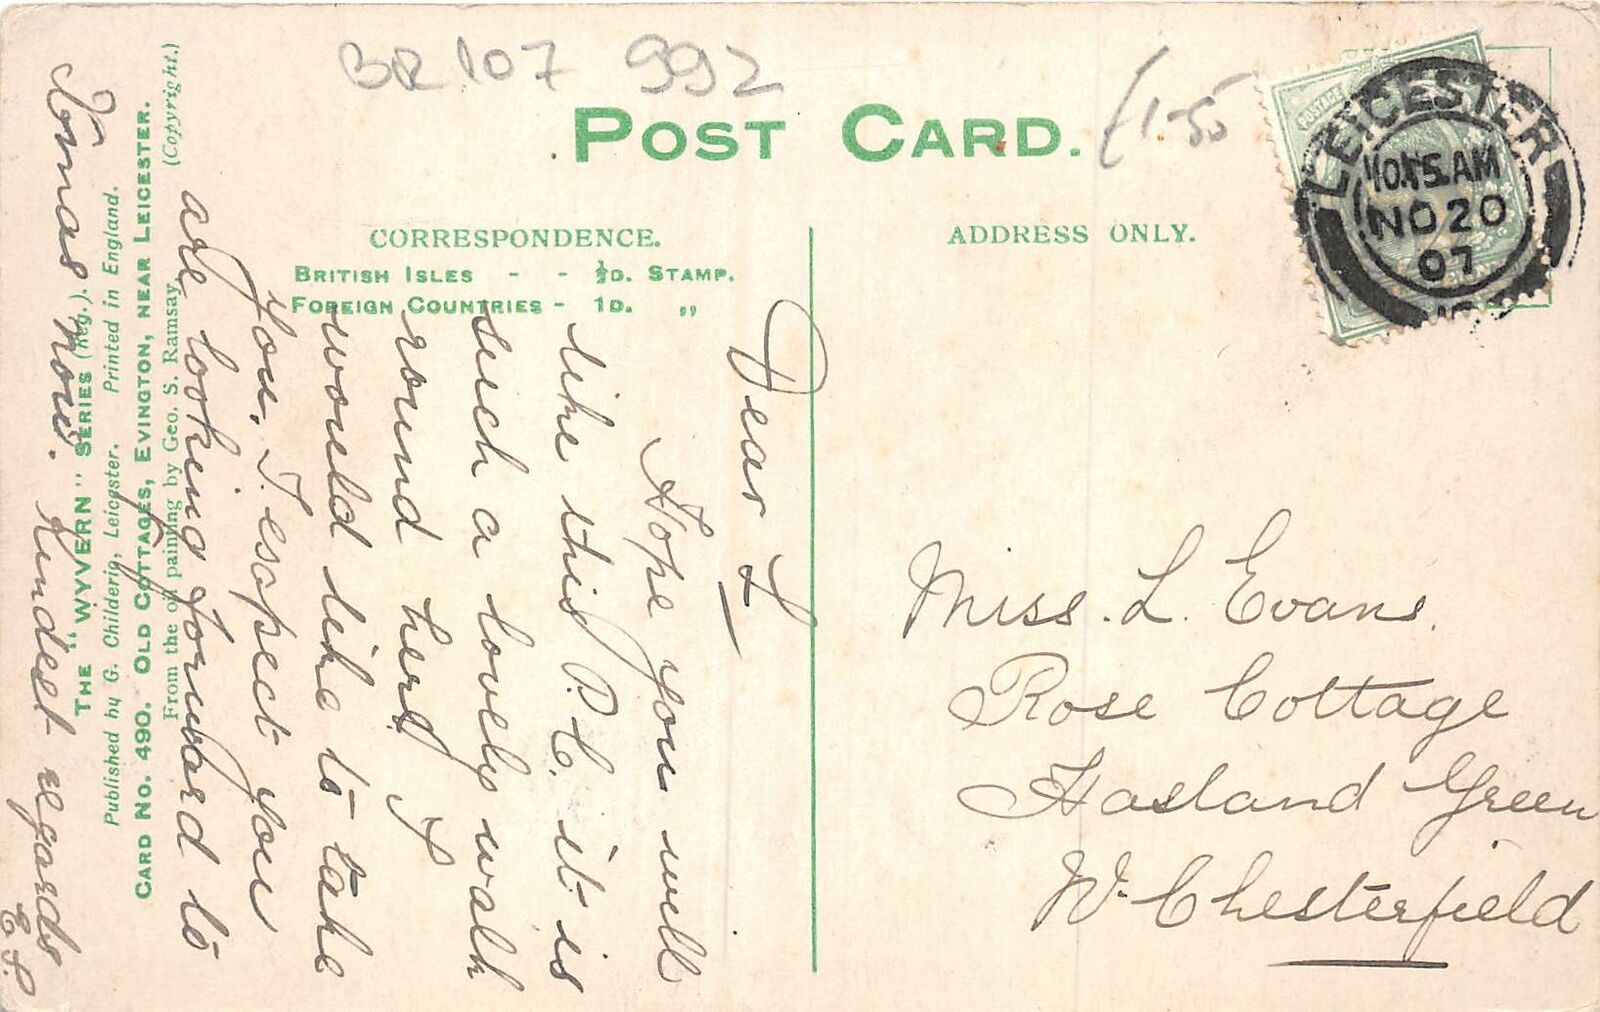 BR 107 992
£1-50
POST CARD.
CORRESPONDENCE.
BRITISH ISLES - - ½D. STAMP.
FOREIGN COUNTRIES - 1D. ,,
ADDRESS ONLY.
POSTAGE
LEICESTER
10.15 AM
NO 20
07
Dear L
Hope you will
like this P.C. it is
such a lovely walk
round here I
would like to take
you, I expect you
are looking forward to
Xmas now. Kindest regards
E.S.
Miss. L. Evans.
Rose Cottage
Hasland Green
Nr Chesterfield
THE "WYVERN" SERIES (Reg.).
Published by G. Childerig, Leicester. Printed in England.
CARD NO. 490. OLD COTTAGES, EVINGTON, NEAR LEICESTER.
From the oil painting by Geo. S. Ramsay. (Copyright.)